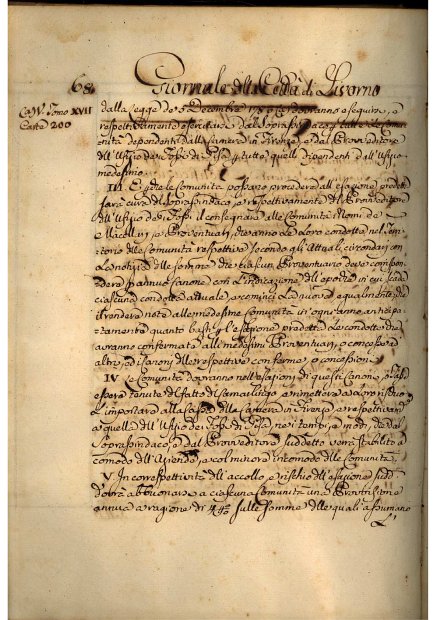 68 Giornale della Città di Livorno
Tomo XVII
Carte 200
dalla Legge de' Decembre dovranno eseguirsi, o
respettivamente esercitarsi dal Soprassindaco tutte le Comu-
nità dipendenti dalla Camera di Firenze, e dal Provveditore
dell'Ufizio de' Fossi di Pisa tutte quelle dipendenti dall'Ufizio
medesimo.
III. E che le Comunità possano procedere all'esazione predetta
sarà cura del Soprassindaco, e respettivamente del Provveditore
dell'Ufizio de' Fossi il consegnare alle Comunità i Nomi de'
Macellari, e Proventuarj, che anno la loro condotta nel Terri-
torio delle Comunità respettive secondo gli Attuali circondarj con
la notizia delle somme, che ciascun Proventuario deve corrispon-
dere per annuo Canone con l'indicazione dell'epoche in cui scade
ciascuna condotta attuale, e cominci la nuova, ed egualmente di
il rendere note alle medesime Comunità in ogni anno anticipa-
tamente quanto basti per l'esazione predetta le condotte che
avranno confermate alli medesimi Proventuarj, o concesse ad
altri, ed i Canoni delle respettive conferme, o concessioni.
IV. Le Comunità dovranno nell'esazione di questi Canoni
essere tenute del fatto di Camarlingo, e rimettere a loro rischio
l'importare alla Cassa della Camera di Firenze, e respettivamente
a quella dell'Ufizio de' Fossi di Pisa, nei tempi, e modi, che dal
Soprassindaco, e dal Provveditore suddetto verrà stabilito a
comodo dell'Azienda, e col minore incomodo delle Comunità.
V. In correspettività dell'accollo, e rischio dell'esazione sudd.
dovrà abbuonarsi a ciascuna Comunità una Provvisione
annua a ragione di sulle somme delle quali assumano
l'